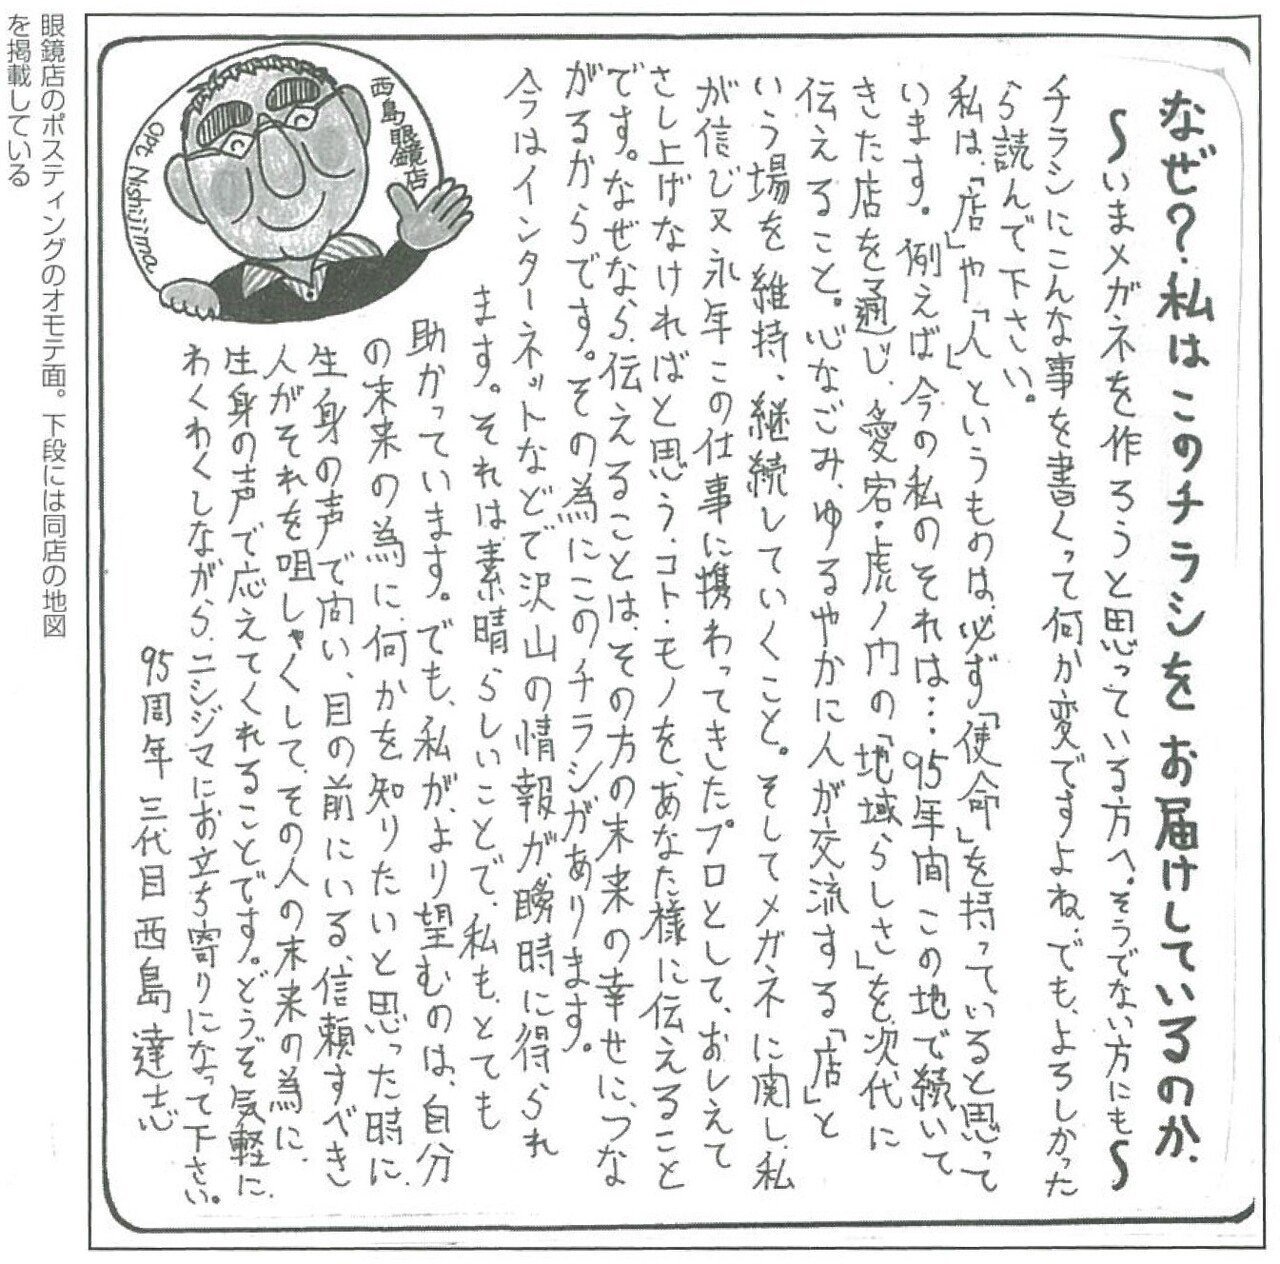 なぜ?私はこのチラシをお届けしているのか.
〜いまメガネを作ろうと思っている方へ。そうでない方にも〜
チラシにこんな事を書くって何か変ですよね。でも、よろしかった
ら読んで下さい。
私は、「店」や「人」というものは、必ず「使命」を持っていると思って
います。例えば今の私のそれは…95年間この地で続いて
きた店を通じ、愛宕・虎ノ門の「地域らしさ」を次代に
伝えること。心なごみ、ゆるやかに人が交流する「店」と
いう場を維持、継続していくこと。そしてメガネに関し、私
が信じ又永年この仕事に携わってきたプロとして、おしえて
さし上げなければと思う、コト・モノを、あなた様に伝えること
です。なぜなら、伝えることは、その方の未来の幸せに、つな
がるからです。その為にこのチラシがあります。
今はインターネットなどで沢山の情報が、瞬時に得られ
ます。それは素晴らしいことで、私も、とても
助かっています。でも、私が、より望むのは、自分
の未来の為に、何かを知りたいと思った時に、
生身の声で問い、目の前にいる、信頼すべき
人がそれを咀しゃくして、その人の未来の為に、
生身の声で応えてくれることです。どうぞ気軽に、
わくわくしながら、ニシジマにお立ち寄りになって下さい。
95周年 三代目 西島達志
西島眼鏡店
Opt Nishijima
眼鏡店のポスティングのオモテ面。下段には同店の地図
を掲載している